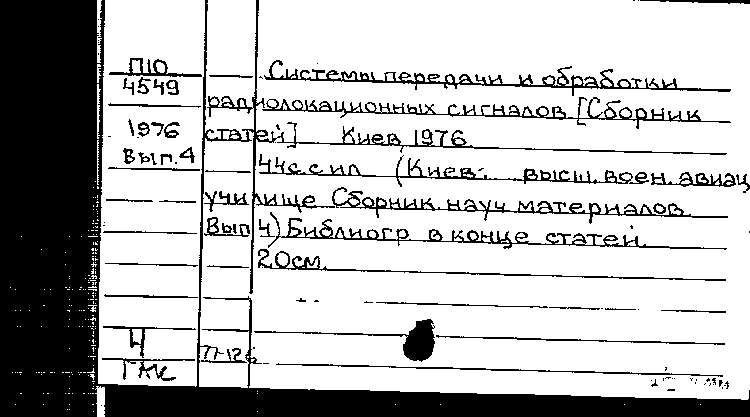 П10
4549
1976
Вып.4
Системы передачи и обработки
радиолокационных сигналов [Сборник
статей] Киев, 1976.
44с.с ил (Киев. высш. воен. авиац
училище Сборник науч материалов.
Вып 4) Библиогр в конце статей.
20см.
4
77-126